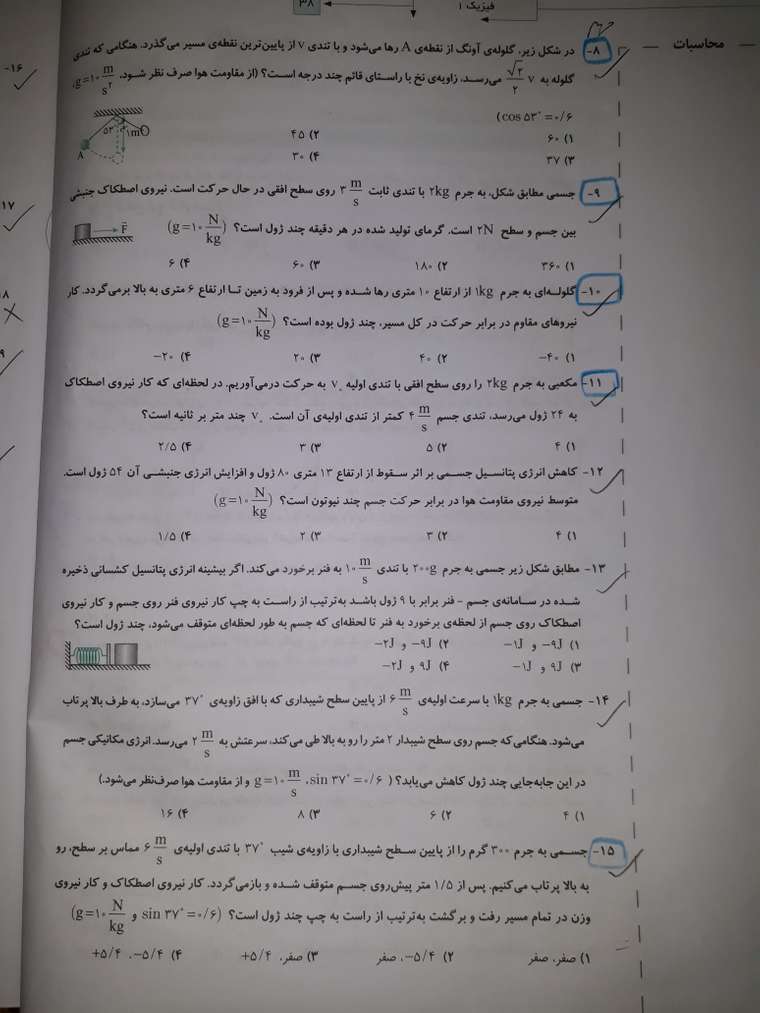 فیزیک ۱
۳۸
محاسبات
۸- در شکل زیر، گلوله‌ی آونگ از نقطه‌ی A رها می‌شود و با تندی v از پایین‌ترین نقطه‌ی مسیر می‌گذرد. هنگامی که تندی
گلوله به √۲/۲ v می‌رسد، زاویه‌ی نخ با راستای قائم چند درجه است؟ (از مقاومت هوا صرف نظر شود، g=۱۰ m/s²،
cos ۵۳°=۰/۶)
۵۳° ۱m O
A
۱) ۶۰ ۲) ۴۵
۳) ۳۷ ۴) ۳۰
۹- جسمی مطابق شکل، به جرم ۲kg با تندی ثابت ۳ m/s روی سطح افقی در حال حرکت است. نیروی اصطکاک جنبشی
بین جسم و سطح ۲N است. گرمای تولید شده در هر دقیقه چند ژول است؟ (g=۱۰ N/kg)
F
۱) ۳۶۰ ۲) ۱۸۰ ۳) ۶۰ ۴) ۶
۱۰- گلوله‌ای به جرم ۱kg از ارتفاع ۱۰ متری رها شده و پس از فرود به زمین تا ارتفاع ۶ متری به بالا برمی‌گردد. کار
نیروهای مقاوم در برابر حرکت در کل مسیر، چند ژول بوده است؟ (g=۱۰ N/kg)
۱) ۴۰- ۲) ۴۰ ۳) ۲۰ ۴) ۲۰-
۱۱- مکعبی به جرم ۲kg را روی سطح افقی با تندی اولیه v۰ به حرکت درمی‌آوریم. در لحظه‌ای که کار نیروی اصطکاک
به ۲۴ ژول می‌رسد، تندی جسم ۴ m/s کمتر از تندی اولیه‌ی آن است. v۰ چند متر بر ثانیه است؟
۱) ۴ ۲) ۵ ۳) ۳ ۴) ۲/۵
۱۲- کاهش انرژی پتانسیل جسمی بر اثر سقوط از ارتفاع ۱۳ متری ۸۰ ژول و افزایش انرژی جنبشی آن ۵۴ ژول است.
متوسط نیروی مقاومت هوا در برابر حرکت جسم چند نیوتون است؟ (g=۱۰ N/kg)
۱) ۴ ۲) ۳ ۳) ۲ ۴) ۱/۵
۱۳- مطابق شکل زیر جسمی به جرم ۲۰۰g با تندی ۱۰ m/s به فنر برخورد می‌کند. اگر بیشینه انرژی پتانسیل کشسانی ذخیره
شده در سامانه‌ی جسم - فنر برابر با ۹ ژول باشد به‌ترتیب از راست به چپ کار نیروی فنر روی جسم و کار نیروی
اصطکاک روی جسم از لحظه‌ی برخورد به فنر تا لحظه‌ای که جسم به طور لحظه‌ای متوقف می‌شود، چند ژول است؟
۱) -۹J و -۱J ۲) -۹J و -۲J
۳) ۹J و -۱J ۴) ۹J و -۲J
۱۴- جسمی به جرم ۱kg با سرعت اولیه‌ی ۶ m/s از پایین سطح شیبداری که با افق زاویه‌ی ۳۷° می‌سازد، به طرف بالا پرتاب
می‌شود. هنگامی‌که جسم روی سطح شیبدار ۲ متر را رو به بالا طی می‌کند، سرعتش به ۲ m/s می‌رسد. انرژی مکانیکی جسم
در این جابه‌جایی چند ژول کاهش می‌یابد؟ (sin ۳۷°=۰/۶، g=۱۰ m/s² و از مقاومت هوا صرف‌نظر می‌شود.)
۱) ۴ ۲) ۶ ۳) ۸ ۴) ۱۶
۱۵- جسمی به جرم ۳۰۰ گرم را از پایین سطح شیبداری با زاویه‌ی شیب ۳۷° با تندی اولیه‌ی ۶ m/s مماس بر سطح، رو
به بالا پرتاب می‌کنیم. پس از ۱/۵ متر پیش‌روی جسم متوقف شده و بازمی‌گردد. کار نیروی اصطکاک و کار نیروی
وزن در تمام مسیر رفت و برگشت به‌ترتیب از راست به چپ چند ژول است؟ (sin ۳۷°=۰/۶ و g=۱۰ N/kg)
۱) صفر، صفر ۲) ۵/۴-، صفر ۳) صفر، ۵/۴+ ۴) ۵/۴-، ۵/۴+
۱۶-
۱۷
۱۸
۹